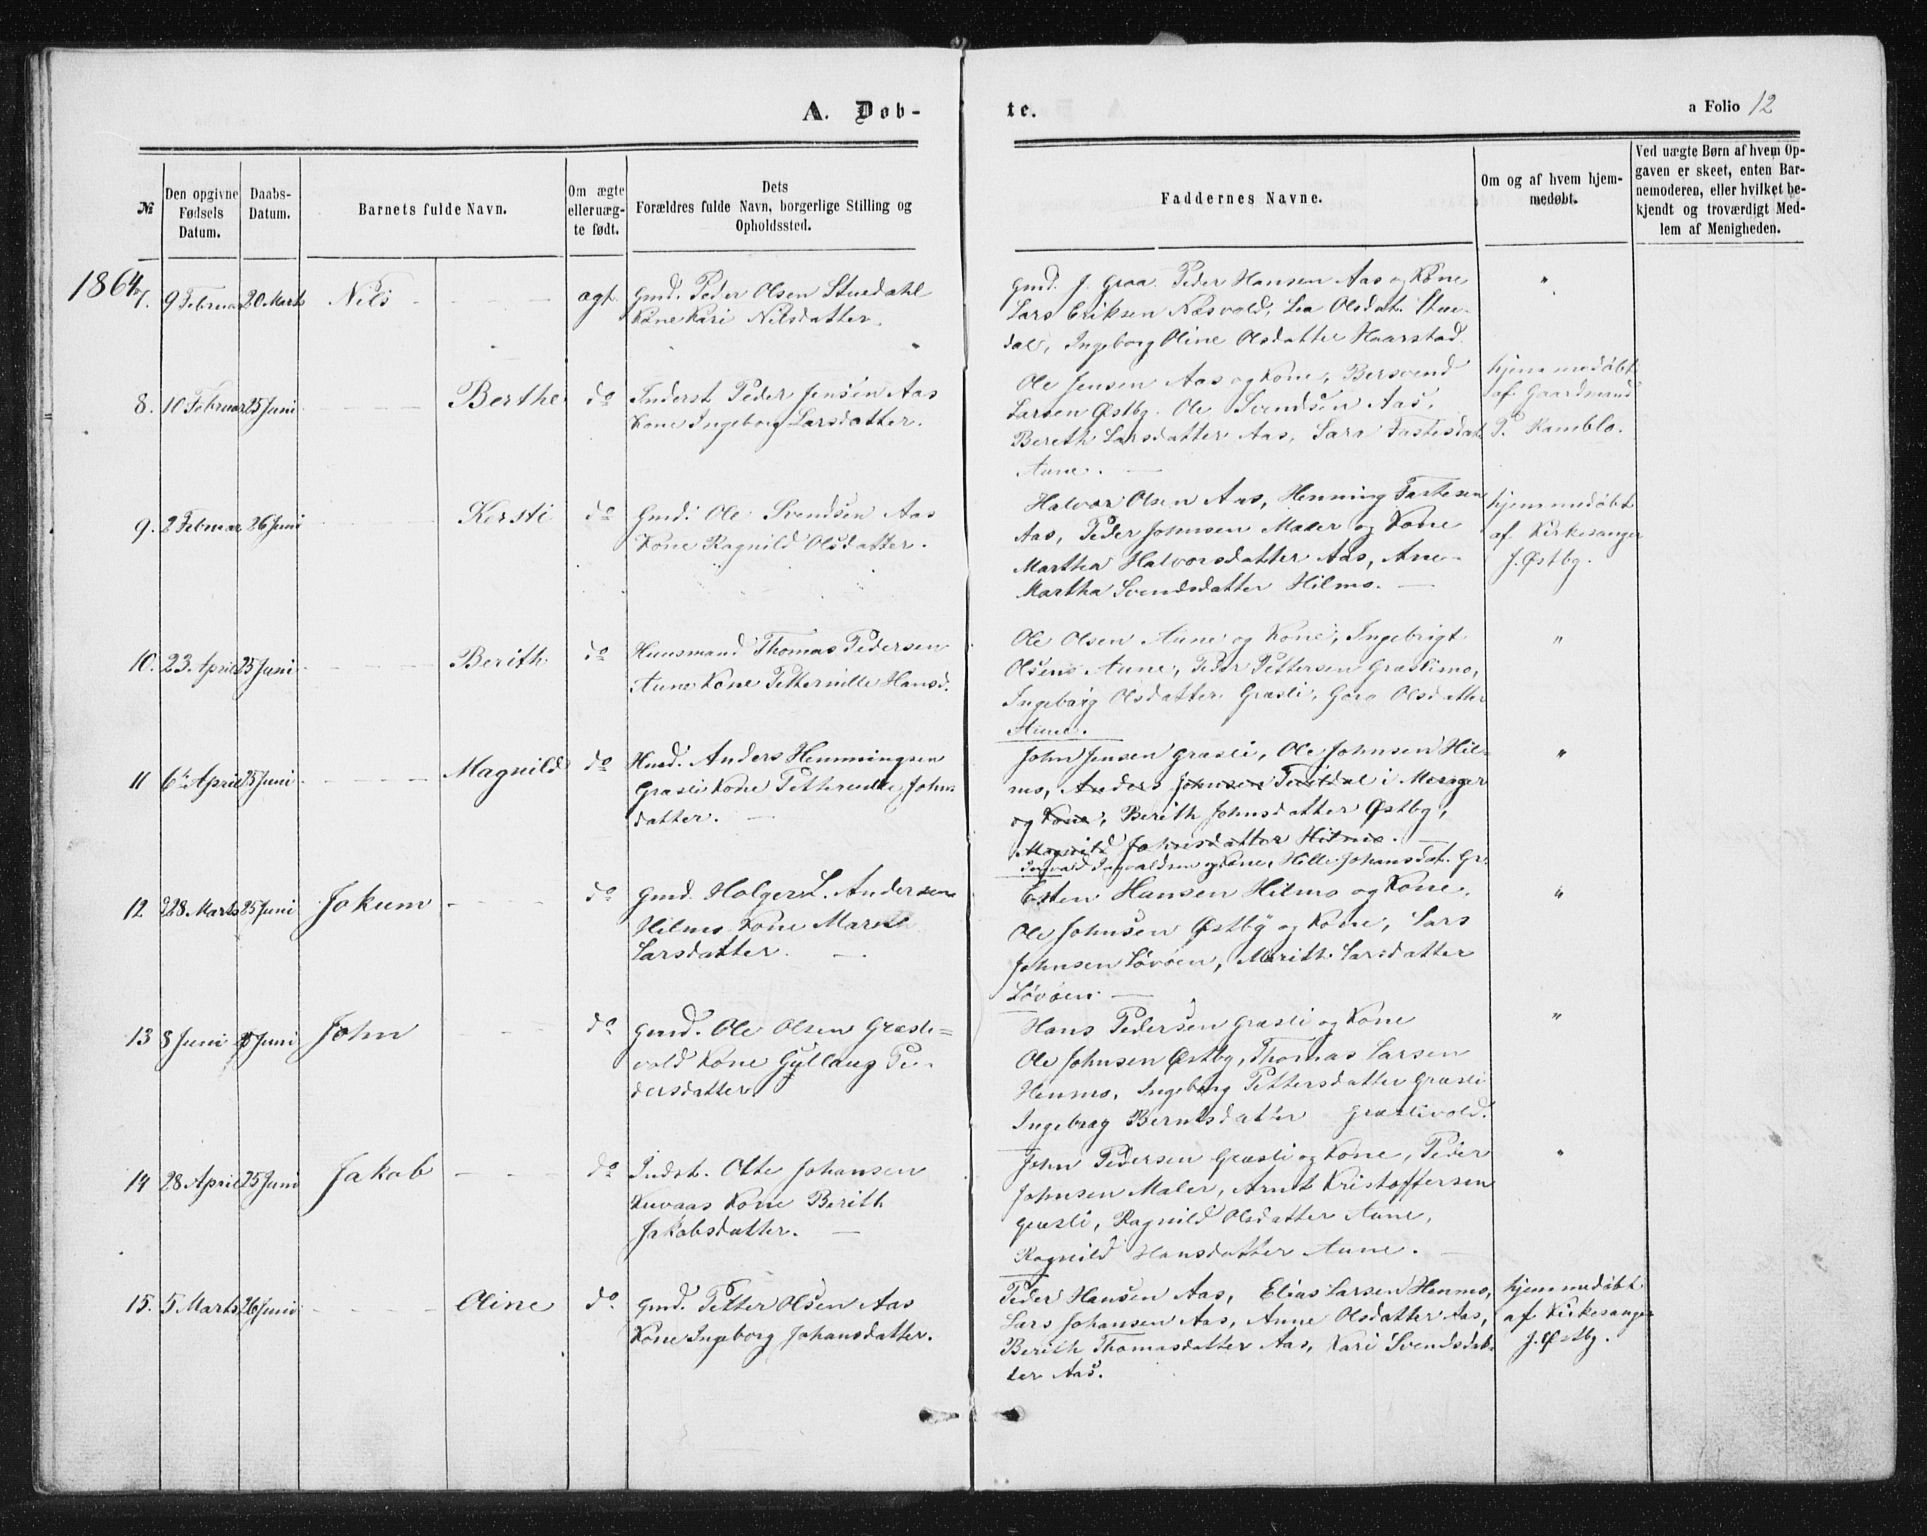 A. Døb-
te.
a Folio 12
№
Den opgivne Fødsels Datum.
Daabs-Datum.
Barnets fulde Navn.
Om ægte eller uæg-te født.
Dets Forældres fulde Navn, borgerlige Stilling og Opholdssted.
Faddernes Navne.
Om og af hvem hjem-medøbt.
Ved uægte Børn af hvem Op-gaven er skeet, enten Bar-nemoderen, eller hvilket be-kjendt og troværdigt Med-lem af Menigheden.
1864
7. 9 Februar 20 Marts Nils ægt.
Gmd. Peder Olsen Stuedahl
Kone Kari Nilsdatter.
Gmd. J. Graa. Peder Hansen Aas og Kone
Lars Eriksen Næsvold, Lea Olsdat. Stue-
dal, Ingeborg Oline Olsdatter Haarstad.
"
8. 10 Februar 25 Juni Berthe do
Inderst Peder Jensen Aas
Kone Ingeborg Larsdatter.
Ole Jensen Aas og Kone, Bersvend
Larsen Østby. Ole Svendsen Aas,
Bereth Larsdatter Aas, Sara Fastesdat.
Aune.
hjemmedøbt
af Gaardmand
P. Kamblo.
9. 2 Februar 26 Juni Kersti do
Gmd. Ole Svendsen Aas
Kone Ragnild Olsdatter.
Halvor Olsen Aas, Henning Fastesen
Aas, Peder Johnsen Maler og Kone
Martha Halvorsdatter Aas, Ane
Martha Svendsdatter Hilmo.
hjemmedøbt
af Kirkesanger
J. Østby.
10. 23 April 25 Juni Berith do
Huusmand Thomas Pedersen
Aune Kone Petternille Hansd.
Ole Olsen Aune og Kone, Ingebrigt
Olsen Aune, Peder Pettersen Græslimo,
Ingeborg Olsdatter Græsli, Goro Olsdatter
Aune.
"
11 6te April 25 Juni Magnild do
Husd. Anders Henningsen
Græsli Kone Petternille Johns
datter.
John Jensen Græsli, Ole Johnsen Hil-
mo, Anders Johnsen i Merager
og Kone, Berith Johnsdatter Østby,
Magnild Johnsdatter Hilmo.
Ingvald Ingvaldsen og Kone, Hille Johansdat. Gr.
"
12 28 Marts 25 Juni Jokum do
Gmd. Holger L. Andersen
Hilmo Kone Maret
Larsdatter.
Esten Hansen Hilmo og Kone,
Ole Johnsen Østby og Kone, Lars
Johnsen Løvøen, Marith Larsdatter
Løvøen.
"
13 8 Juni Juni John do
Gmd. Ole Olsen Græsli=
vold Kone Gyllaug Pe-
dersdatter
Hans Pedersen Græsli og Kone
Ole Johnsen Østby, Thomas Larsen
Henmo, Ingeborg Pettersdatter Græsli
Ingebrag Berntsdatter Græslivold.
"
14 28 April 25 Juni Jakob do
Indst. Otte Johansen
Kuvaas Kone Berith
Jakobsdatter.
John Pedersen Græsli og Kone, Peder
Johnsen Maler, Arnt Kristoffersen
Græsli, Ragnild Olsdatter Aune,
Ragnild Hansdatter Aune.
"
15. 5 Marts 26 Juni Oline do
Gmd. Petter Olsen Aas
Kone Ingeborg Johansdatter.
Peder Hansen Aas, Elias Larsen Henmo,
Lars Johansen Aas, Anne Olsdatter Aas,
Berith Thomasdatter Aas, Kari Svendsdat-
ter Aas.
hjemmedøbt
af Kirkesanger
J. Østby.